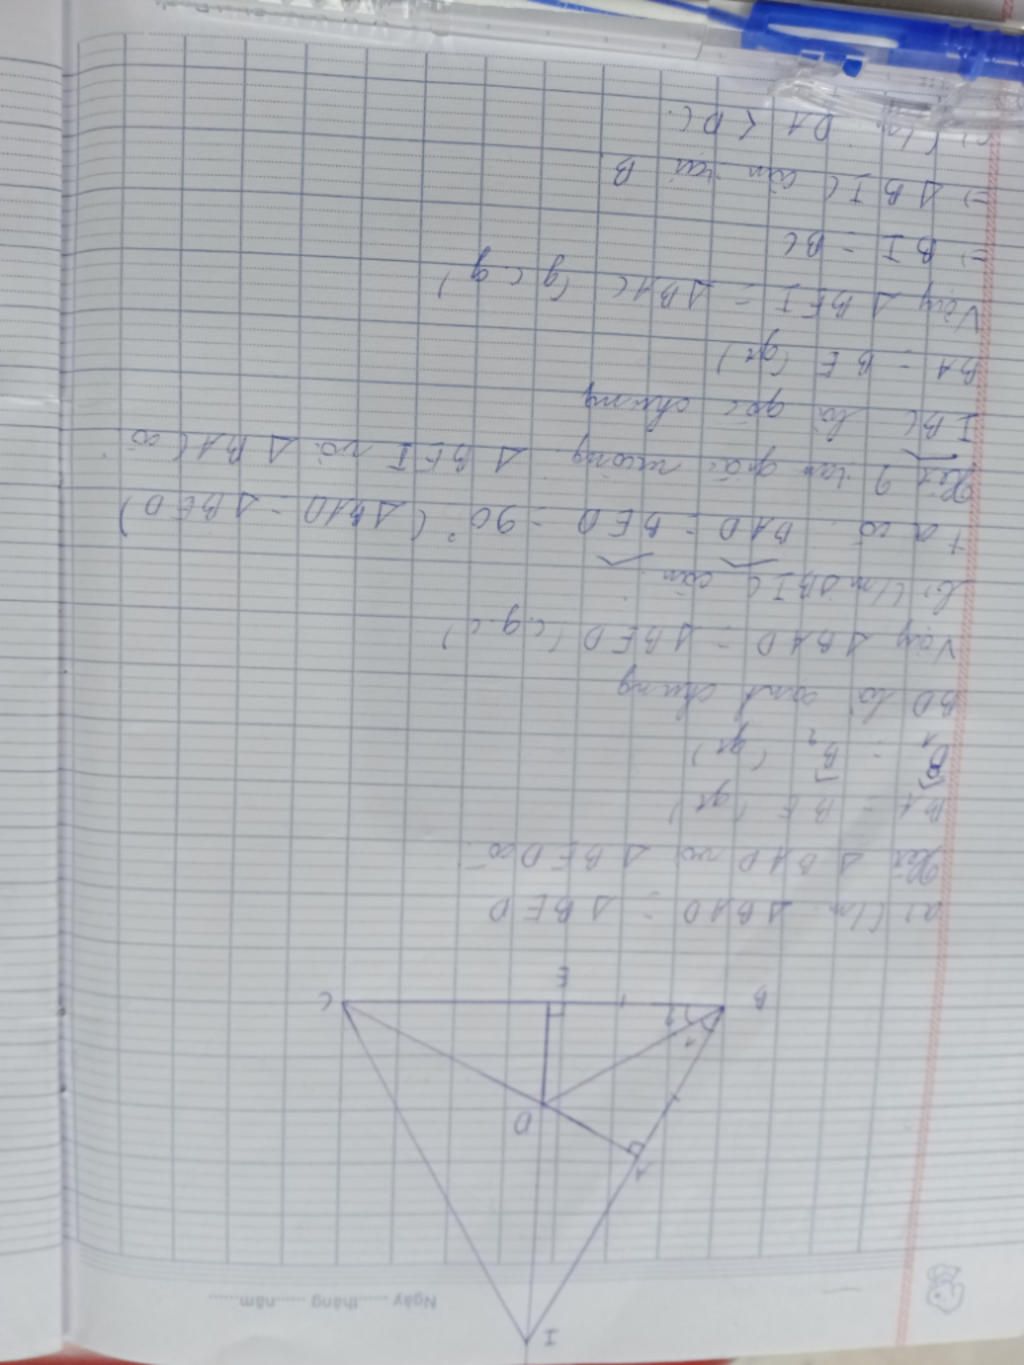 Ngày ...... tháng ...... năm ......
I
A
D
1
2
B
E
C
a) C/m ΔBAD = ΔBED
Xét ΔBAD và ΔBED có:
BA = BE (gt)
B̂1 = B̂2 (gt)
BD là cạnh chung
Vậy ΔBAD = ΔBED (c.g.c)
b, C/m ΔBIC cân.
Ta có BAD = BED = 90° (ΔBAD = ΔBED)
Xét 2 tam giác vuông ΔBEI và ΔBAC có
IBC là góc chung
BA = BE (gt)
Vậy ΔBEI = ΔBAC (g.c.g)
=> BI = BC
=> ΔBIC cân tại B
c) C/m DA < DC.